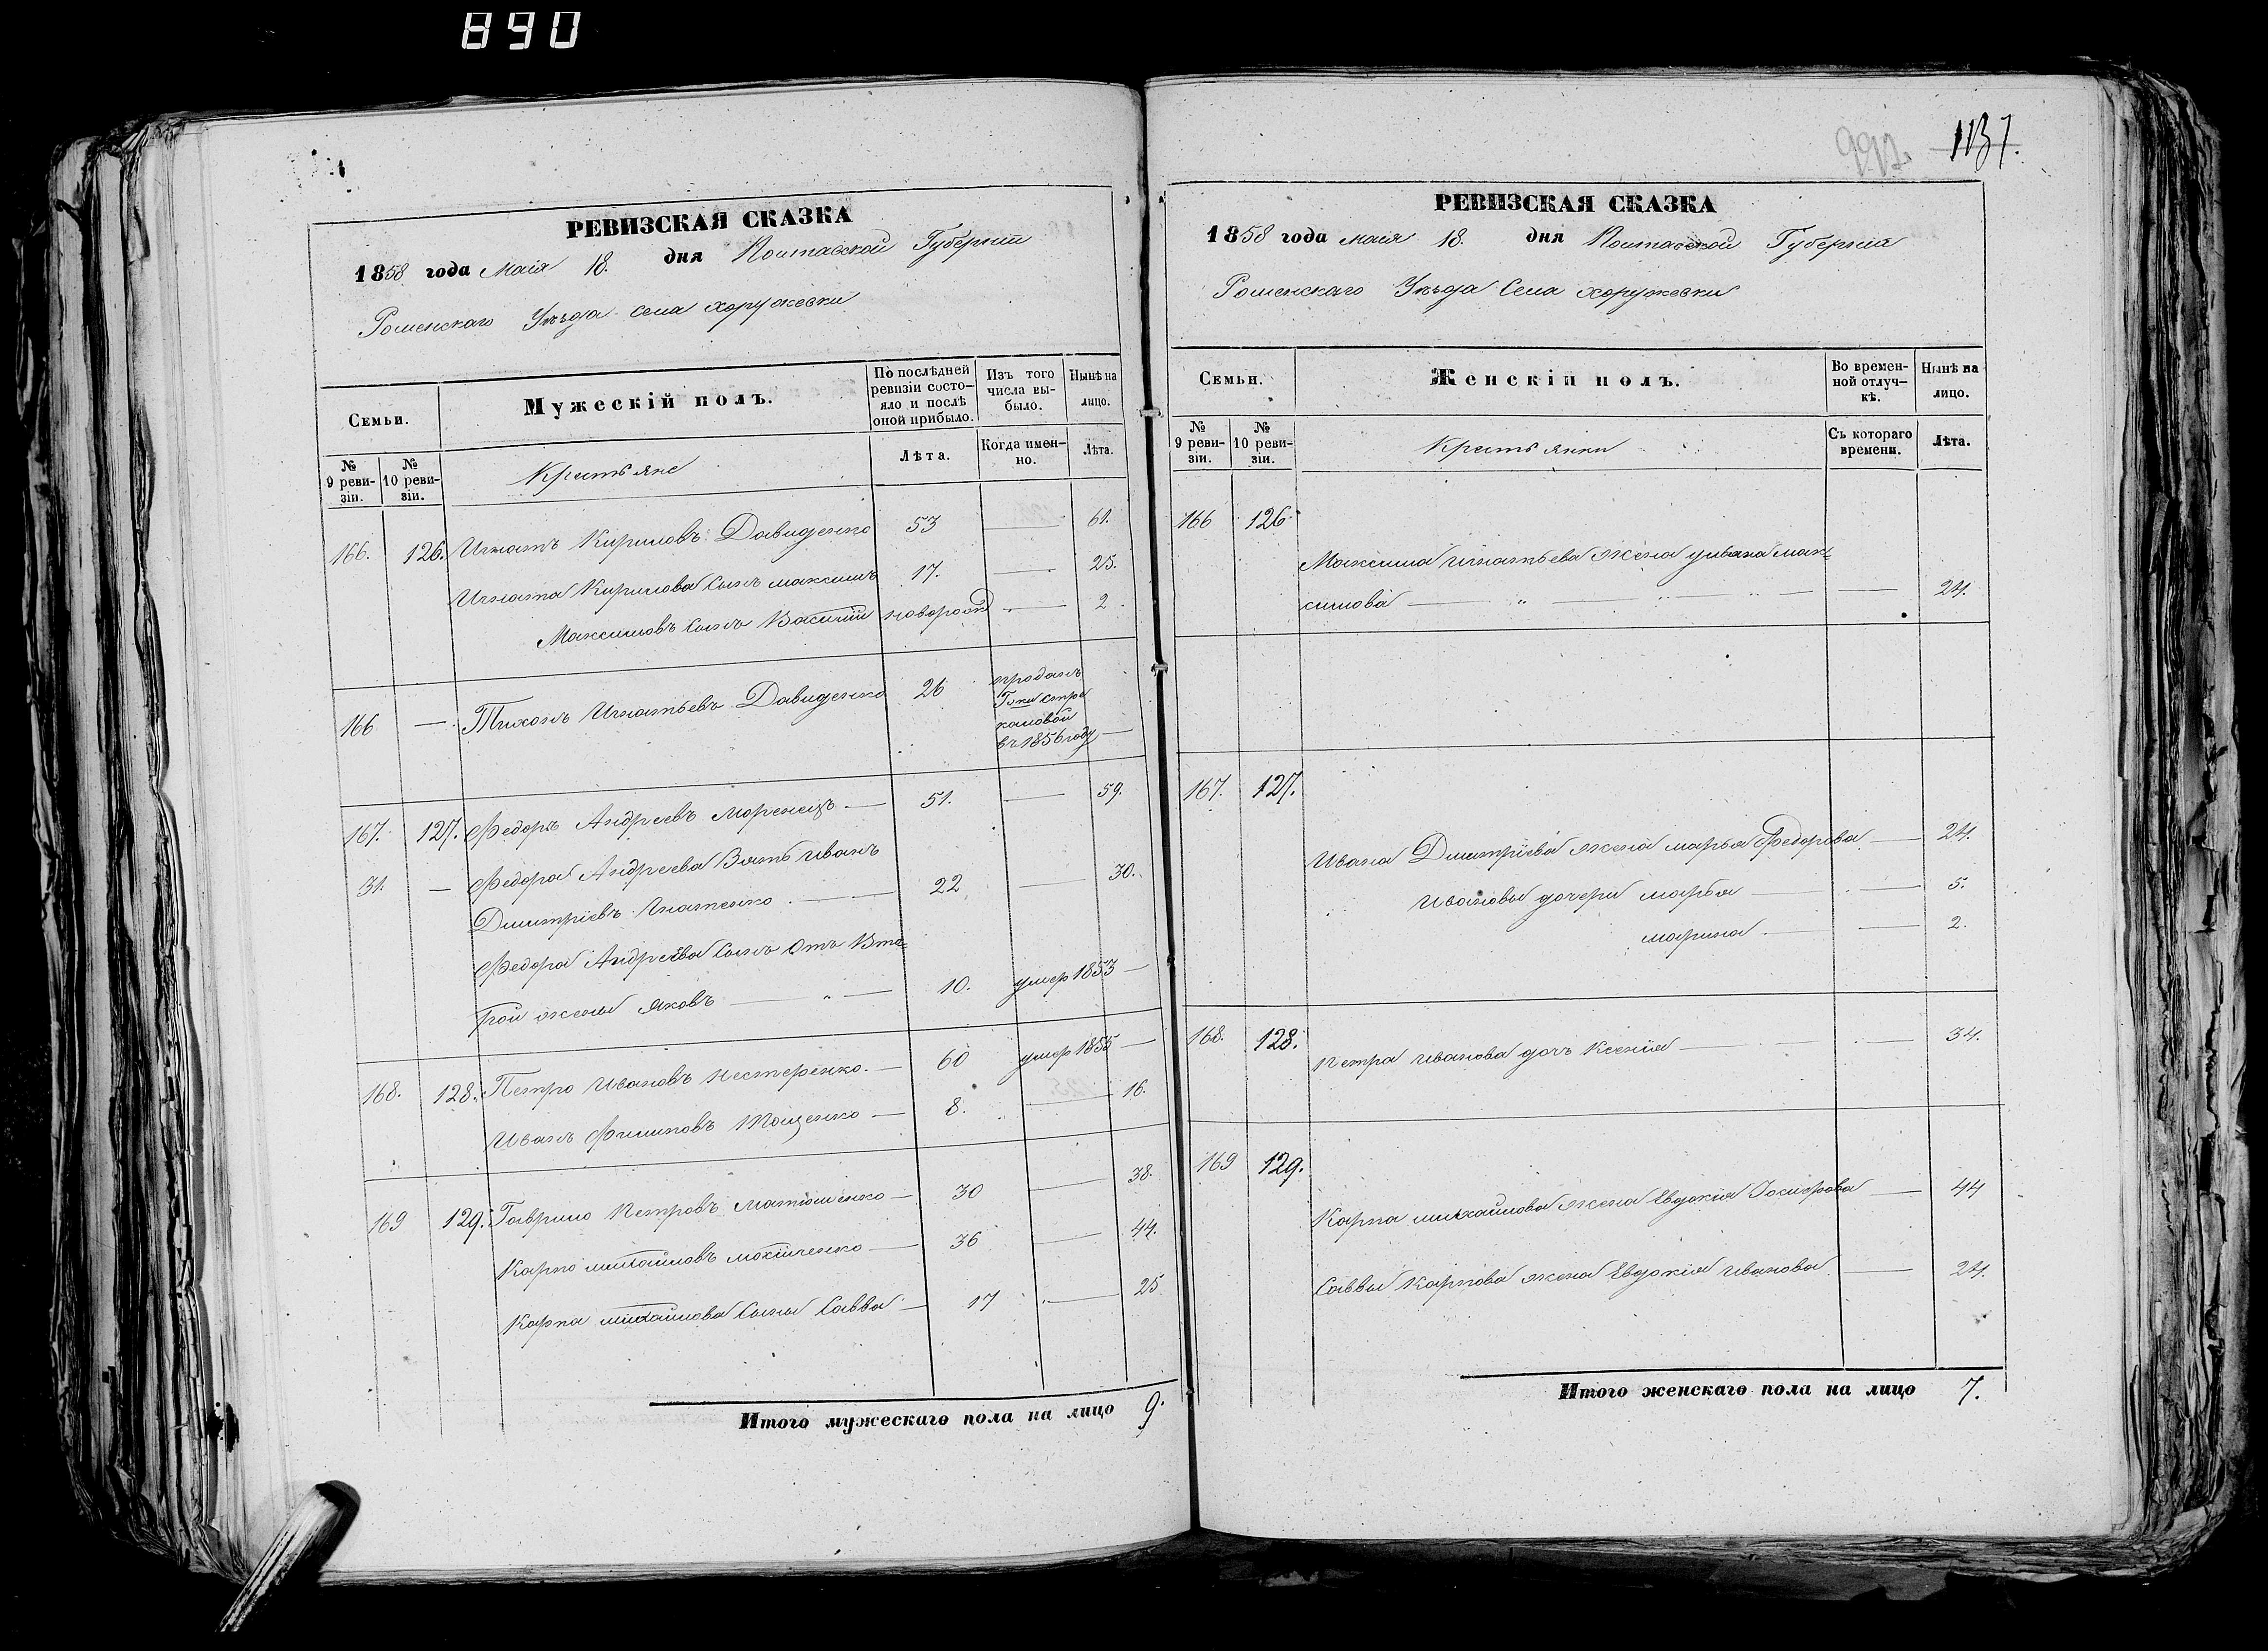 890
РЕВИЗСКАЯ СКАЗКА
1858 года Маія 18. дня Полтавской Губерніи
Роменскаго Уѣзда Села Хоружевки
Семьи.
Мужескій полъ.
По послѣдней ревизіи состояло и послѣ оной прибыло.
Изъ того числа выбыло.
Нынѣ на лицо.
№ 9 ревизіи.
№ 10 ревизіи.
Крестьяне
Лѣта.
Когда именно.
Лѣта.
166. 126. Игнатъ Кириловъ Давиденко 53 — 61.
Игната Кирилова Сынъ Максимъ 17. — 25.
Максимовъ Сынъ Василій новорожд — 2.
166 — Тихонъ Игнатьевъ Давиденко 26 проданъ
въ 1856 году —
167. 127. Федоръ Андреевъ Моренецъ — 51. — 59.
31. — Федора Андреева Зять Иванъ
Дмитріевъ Игнатенко — 22 — 30.
Федора Андреева Сынъ Отъ Вто=
рой жены Яковъ — „ — 10. умер 1853 —
168. 128. Петро Ивановъ Нестеренко — 60 умер 1855 —
Иванъ Филиповъ Тощенко — 8. — 16.
169 129. Гаврило Петровъ Матюшенко — 30 — 38.
Карпо Михайловъ — 36 — 44.
Карпа Михайлова Сыны Савва — 17 — 25
Итого мужескаго пола на лицо 9.
992. 1137.
РЕВИЗСКАЯ СКАЗКА
1858 года маія 18. дня Полтавской Губерніи
Роменскаго Уѣзда Села Хоружевки
Семьи.
Женскій полъ.
Во временной отлучкѣ.
Нынѣ на лицо.
№ 9 ревизіи.
№ 10 ревизіи.
Крестьянки
Съ котораго времени.
Лѣта.
166 126
Максима Игнатьева жена Уліана Мак=
симова — „ — „ — „ — — 24.
167. 127.
Ивана Дмитріева жена Марья Федорова — 24.
Ивановы дочери Марья — — 5.
Марина — — 2.
168. 128. Петра Иванова дочь Ксенія — — 34.
169 129.
Карпа Михайлова жена Евдокія — 44
Саввы Карпова жена Евдокія Иванова — 24.
Итого женскаго пола на лицо 7.